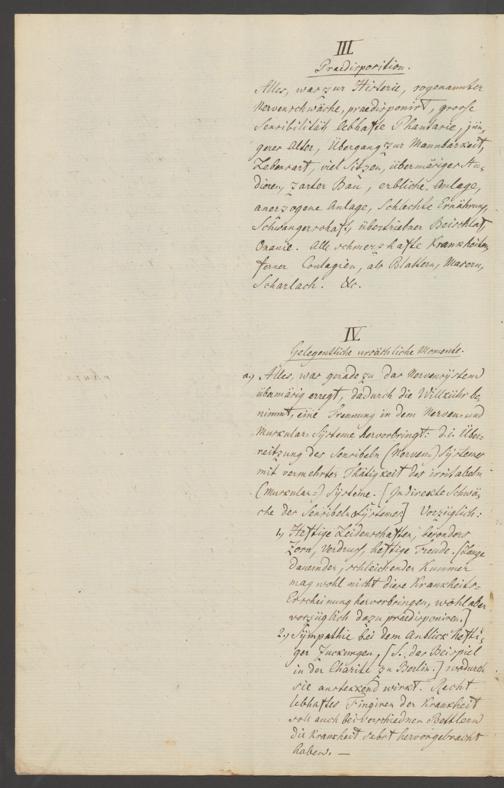 III.
Praedisposition.
Alles, was zur Histerie, sogenannter
Nervenschwäche, praedisponirt, grosse
Sensibilität lebhafte Phantasie, jün-
geres Alter, Übergang zur Mannbarkeit,
Lebensart, viel Sitzen, übermäsiges Stu-
dieren, zarter Bau, erbliche Anlage,
anerzogene Anlage, Schlechte Ernährung,
Schwangerschaft, übertriebner Beischlaf,
Onanie. Alle schmerzhafte Krankheiten,
ferner Contagien, als Blattern, Masern,
Scharlach. &c.
IV.
Gelegentliche ursächliche Momente.
a, Alles, was gerade zu das Nervensystem
übermäsig erregt, dadurch die Willkühr be-
nimmt, eine Trennung in dem Nerven- und
Muskular-Systeme hervorbringt: die Über-
reitzung des Sensibeln (Nerven) Systemes
mit vermehrter Thätigkeit des irritabeln
(Muskular-) Systeme. [Indirekte Schwä-
che des Sensibeln Systemes] Vorzüglich:
1, Heftige Leidenschaften, besonders
Zorn, Verdruß, heftige Freude. [Lange
dauernder, schleichender Kummer
mag wohl nicht diese Krankheits-
Erscheinung hervorbringen, wohl aber
vorzüglich dazu praedisponiren.]
2, Sympathie bei dem Anblick hefti-
ger Zuckungen, [S. das Beispiel
in der Charité zu Berlin.] wodurch
sie ansteckend wirkt. Recht
lebhaftes Fingiren der Krankheit
soll auch bei verschiednen Bettlern
die Krankheit selbst hervorgebracht
haben. —